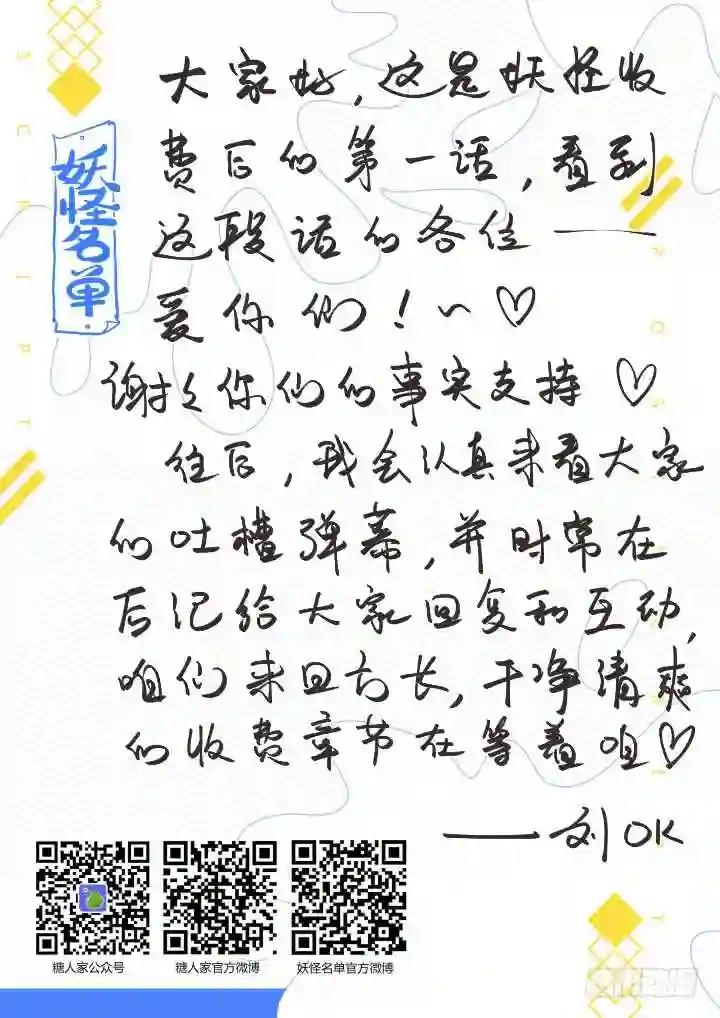 SCRIPT
妖怪名单
大家好，这是妖怪收
费后的第一话，看到
这段话的各位——
爱你们！~♡
谢谢你们的事实支持♡
往后，我会认真来看大家
的吐槽弹幕，并时常在
后记给大家回复和互动，
咱们来日方长，干净清爽
的收费章节在等着咱♡
——刘OK
糖人家公众号
糖人家官方微博
妖怪名单官方微博